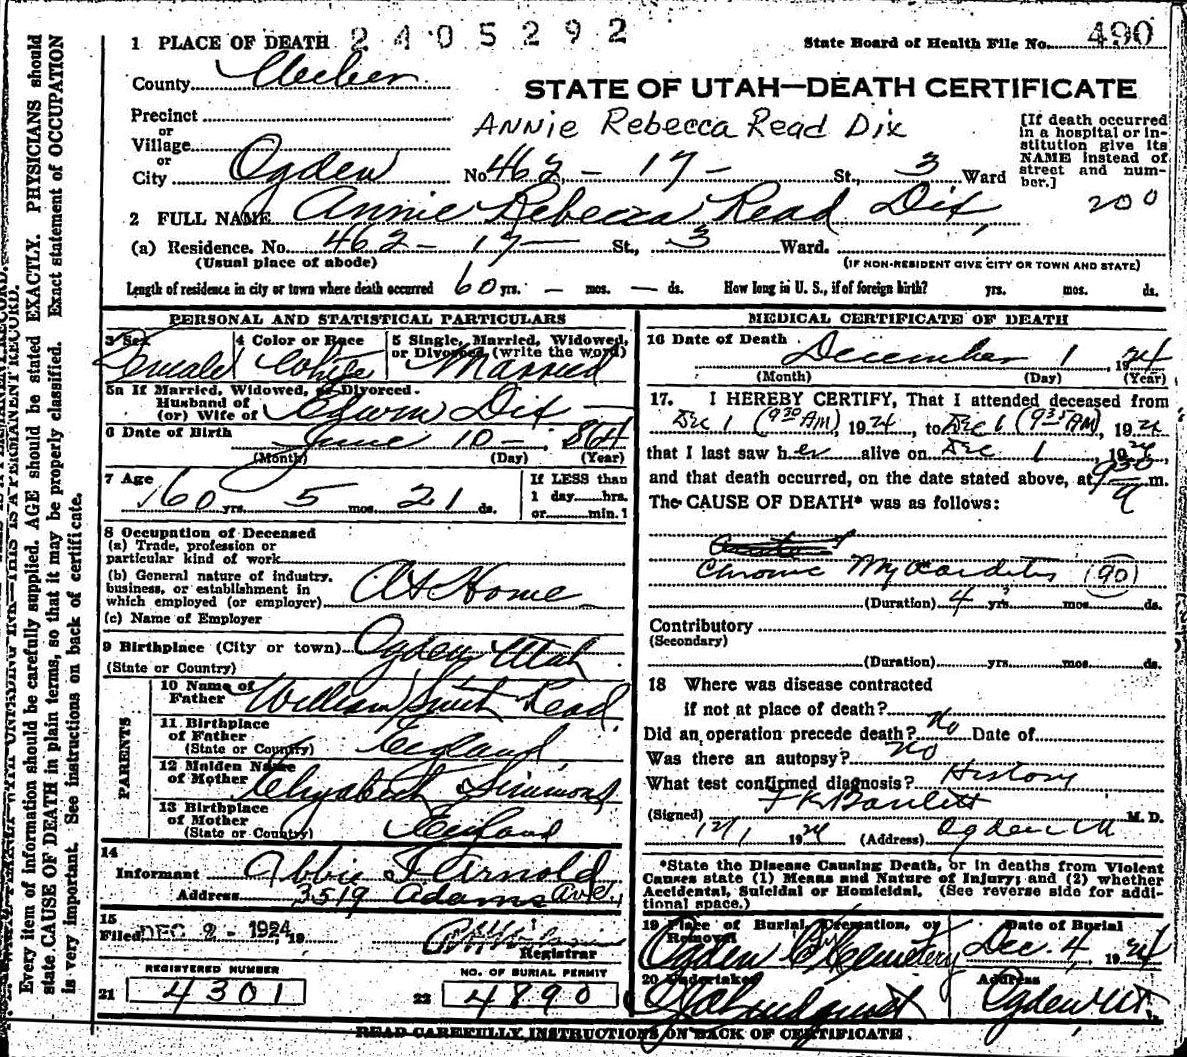 2405292
1 PLACE OF DEATH
State Board of Health File No. 490
County Weber
STATE OF UTAH—DEATH CERTIFICATE
Precinct
or
Village
or
City Ogden
ANNIE Rebecca Read Dix
[If death occurred
in a hospital or in-
stitution give its
NAME instead of
street and num-
ber.]
200
No. 462 - 17 - St., 3 Ward
2 FULL NAME Annie Rebecca Read Dix,
(a) Residence. No. 462 - 17 - St., 3 Ward.
(Usual place of abode)
(IF NON-RESIDENT GIVE CITY OR TOWN AND STATE)
Length of residence in city or town where death occurred 60 yrs. — mos. — ds. How long in U. S., if of foreign birth? yrs. mos. ds.
PERSONAL AND STATISTICAL PARTICULARS
3 Sex Female
4 Color or Race White
5 Single, Married, Widowed,
or Divorced (write the word)
Married
5a If Married, Widowed, or Divorced.
Husband of
(or) Wife of Edwin Dix
6 Date of Birth June 10 - 1864
(Month) (Day) (Year)
7 Age 60 yrs. 5 mos. 21 ds.
If LESS than
1 day hrs.
or min.
8 Occupation of Deceased
(a) Trade, profession or
particular kind of work
(b) General nature of industry.
business, or establishment in
which employed (or employer) At Home
(c) Name of Employer
9 Birthplace (City or town) Ogden Utah
(State or Country)
PARENTS
10 Name of
Father William Smith Read
11 Birthplace
of Father
(State or Country) England
12 Maiden Name
of Mother Elizabeth Simmons
13 Birthplace
of Mother
(State or Country) England
14
Informant Abbie F Arnold
Address 3519 Adams Ave.
15
Filed DEC 2 - 1924, 19
Registrar
REGISTERED NUMBER
21 4301
NO. OF BURIAL PERMIT
22 4890
MEDICAL CERTIFICATE OF DEATH
16 Date of Death December 1, 1924
(Month) (Day) (Year)
17. I HEREBY CERTIFY, That I attended deceased from
Dec 1 (9:30 AM), 1924, to Dec 1 (9:35 AM), 1924
that I last saw her alive on Dec 1, 1924
and that death occurred, on the date stated above, at 930 a m.
The CAUSE OF DEATH* was as follows:
Chronic Myocarditis (90)
(Duration) 4 yrs. mos. ds.
Contributory
(Secondary)
(Duration) yrs. mos. ds.
18 Where was disease contracted
if not at place of death?
Did an operation precede death? No Date of
Was there an autopsy? no
What test confirmed diagnosis? History
(Signed) F K Bartlett M.D.
12/1 1924 (Address) Ogden Ut
*State the Disease Causing Death, or in deaths from Violent
Causes state (1) Means and Nature of Injury; and (2) whether
Accidental, Suicidal or Homicidal. (See reverse side for addi-
tional space.)
19 Place of Burial, Cremation, or
Removal
Ogden City Cemetery
Date of Burial
Dec. 4, 1924
20 Undertaker
Address
Ogden Ut.
READ CAREFULLY INSTRUCTIONS ON BACK OF CERTIFICATE.
Every item of information should be carefully supplied. AGE should be stated EXACTLY. PHYSICIANS should
state CAUSE OF DEATH in plain terms, so that it may be properly classified. Exact statement of OCCUPATION
is very important. See instructions on back of certificate.